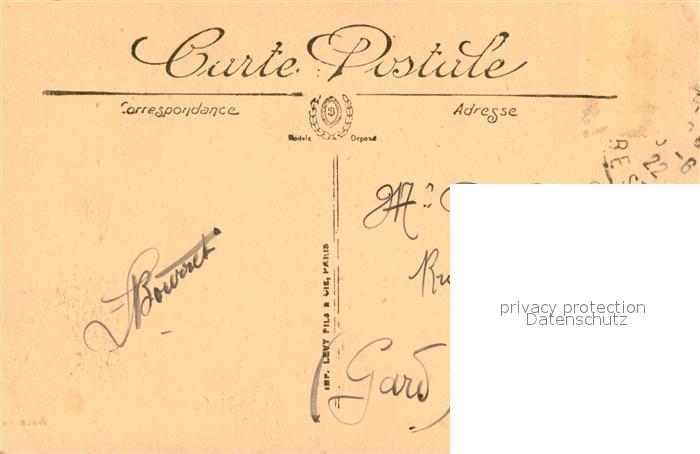 Carte Postale
Correspondance
Adresse
Modèle Déposé
IMP. LEVY FILS & CIE, PARIS
Bourret
(Gard)
privacy protection
Datenschutz